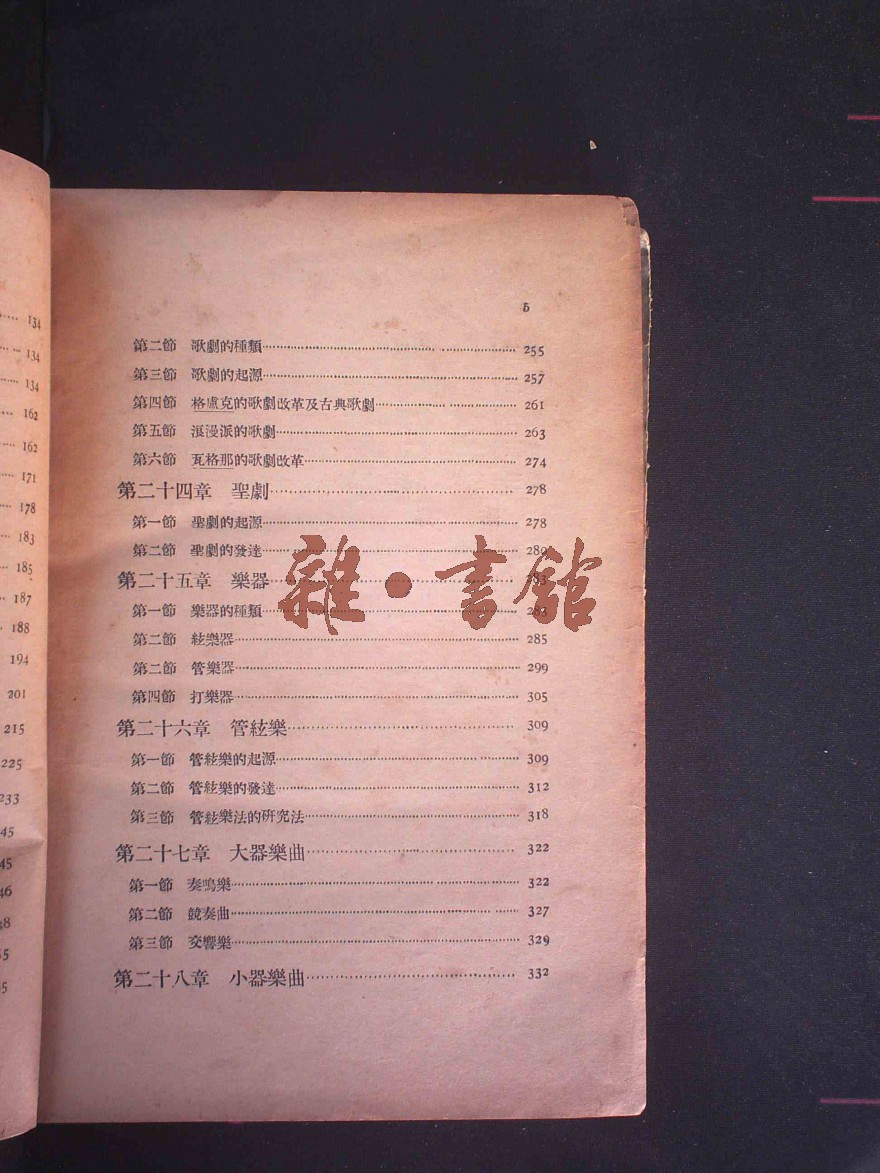 134
134
134
162
162
171
178
183
185
187
188
194
201
215
225
233
45
45
46
48
5
5
5
第二節 歌劇的種類 255
第三節 歌劇的起源 257
第四節 格盧克的歌劇改革及古典歌劇 261
第五節 浪漫派的歌劇 263
第六節 瓦格那的歌劇改革 274
第二十四章 聖劇 278
第一節 聖劇的起源 278
第二節 聖劇的發達 280
第二十五章 樂器 283
第一節 樂器的種類 283
第二節 絃樂器 285
第二節 管樂器 299
第四節 打樂器 305
第二十六章 管絃樂 309
第一節 管絃樂的起源 309
第二節 管絃樂的發達 312
第三節 管絃樂法的研究法 318
第二十七章 大器樂曲 322
第一節 奏鳴樂 322
第二節 競奏曲 327
第三節 交響樂 329
第二十八章 小器樂曲 332
雜·書館